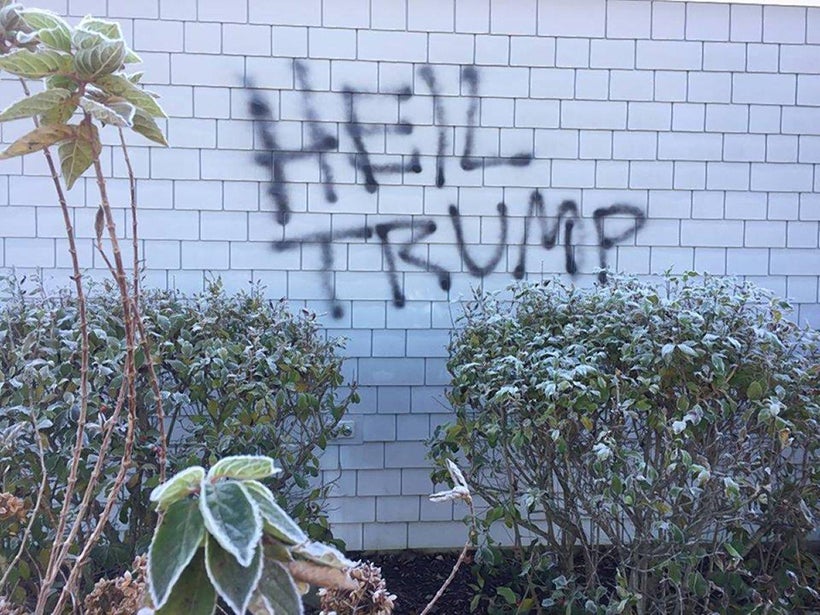 HEIL
TRUMP